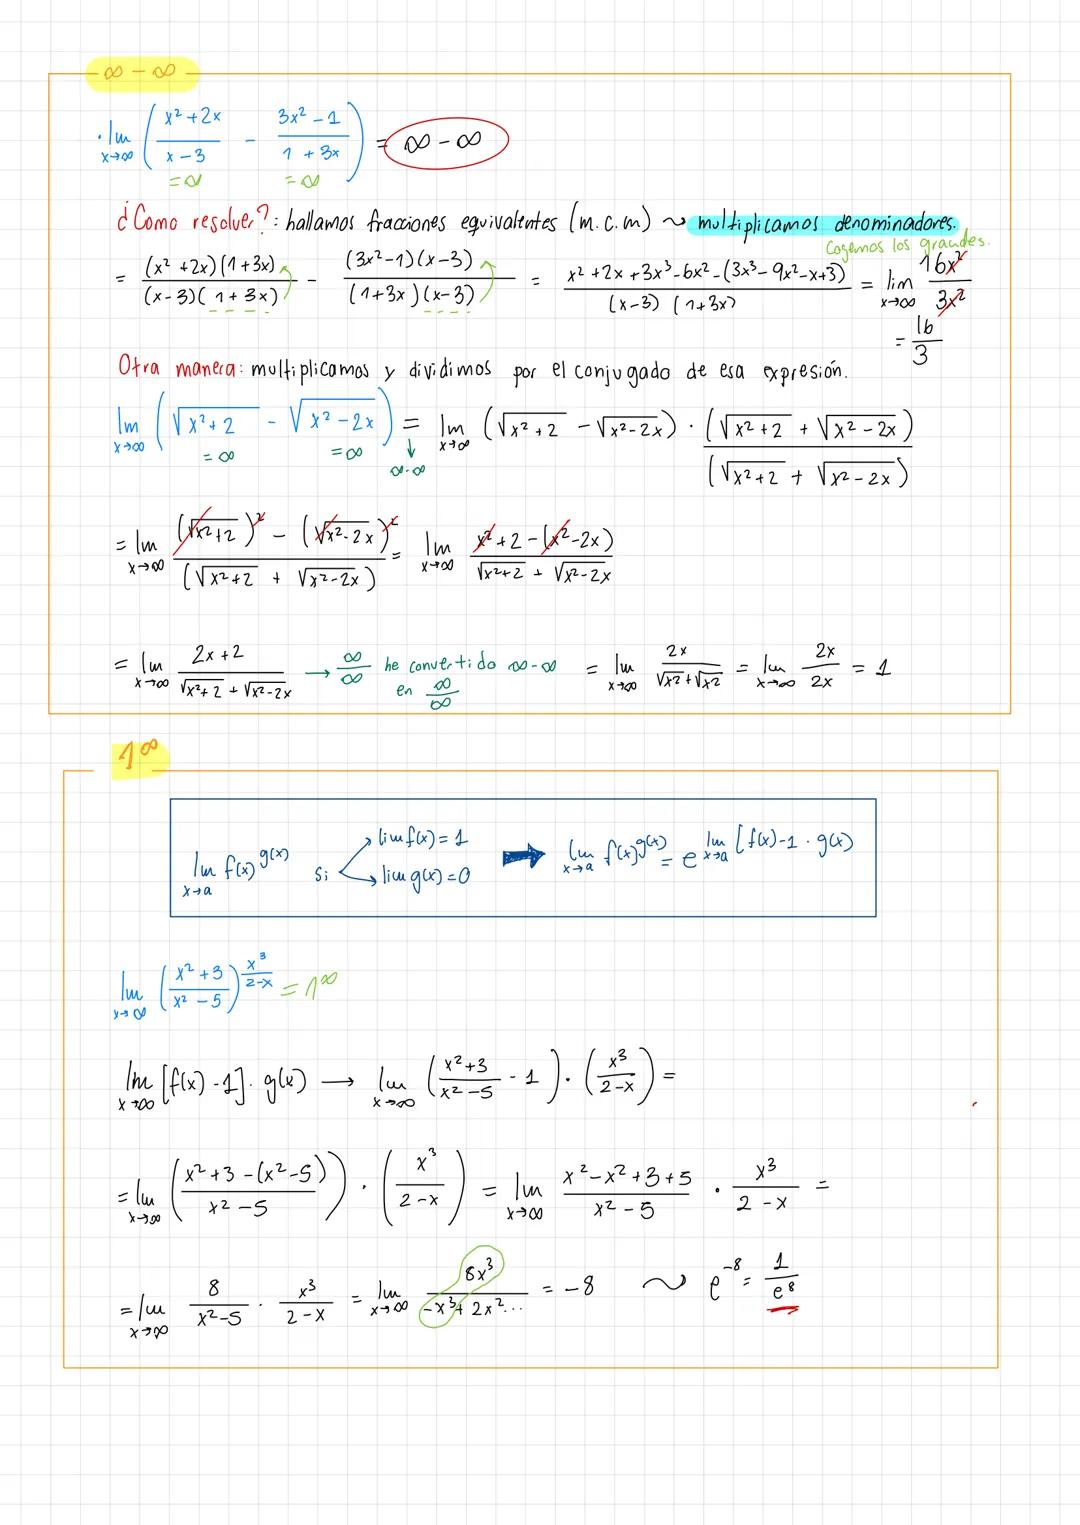 ∞ - ∞
· lim x→∞ ( (x² + 2x)/(x - 3) - (3x² - 1)/(1 + 3x) ) = ∞ - ∞
= ∞ = ∞
¿Como resolver?: hallamos fracciones equivalentes (m.c.m) ~ multiplicamos denominadores.
Cogemos los grandes.
= (x² + 2x)(1 + 3x)/(x - 3)(1 + 3x) - (3x² - 1)(x - 3)/(1 + 3x)(x - 3) = x² + 2x + 3x³ - 6x² - (3x³ - 9x² - x + 3)/(x - 3)(1 + 3x) = lim x→∞ 16x²/3x²
= 16/3
Otra manera: multiplicamos y dividimos por el conjugado de esa expresión.
lim x→∞ ( √x² + 2 - √x² - 2x ) = lim x→∞ (√x² + 2 - √x² - 2x) · (√x² + 2 + √x² - 2x)/(√x² + 2 + √x² - 2x)
= ∞ = ∞ ↓ ∞-∞
= lim x→∞ (√x² + 2)² - (√x² - 2x)²/(√x² + 2 + √x² - 2x) = lim x→∞ x² + 2 - (x² - 2x)/√x² + 2 + √x² - 2x
= lim x→∞ 2x + 2/√x² + 2 + √x² - 2x → ∞/∞ he convertido ∞-∞ en ∞/∞ = lim x→∞ 2x/√x² + √x² = lim x→∞ 2x/2x = 1
1^∞
lim x→a f(x)^g(x) si lim f(x) = 1 lim g(x) = 0 → lim x→a f(x)^g(x) = e^lim x→a [f(x) - 1 · g(x)
lim x→∞ (x² + 3/x² - 5)^x³/2-x = 1^∞
lim x→∞ [f(x) - 1] · g(x) → lim x→∞ (x² + 3/x² - 5 - 1) · (x³/2 - x) =
= lim x→∞ (x² + 3 - (x² - 5)/x² - 5) · (x³/2 - x) = lim x→∞ x² - x² + 3 + 5/x² - 5 · x³/2 - x =
= lim x→∞ 8/x² - 5 · x³/2 - x = lim x→∞ 8x³/-x³ + 2x² ... = -8 ~ e^-8 = 1/e^8